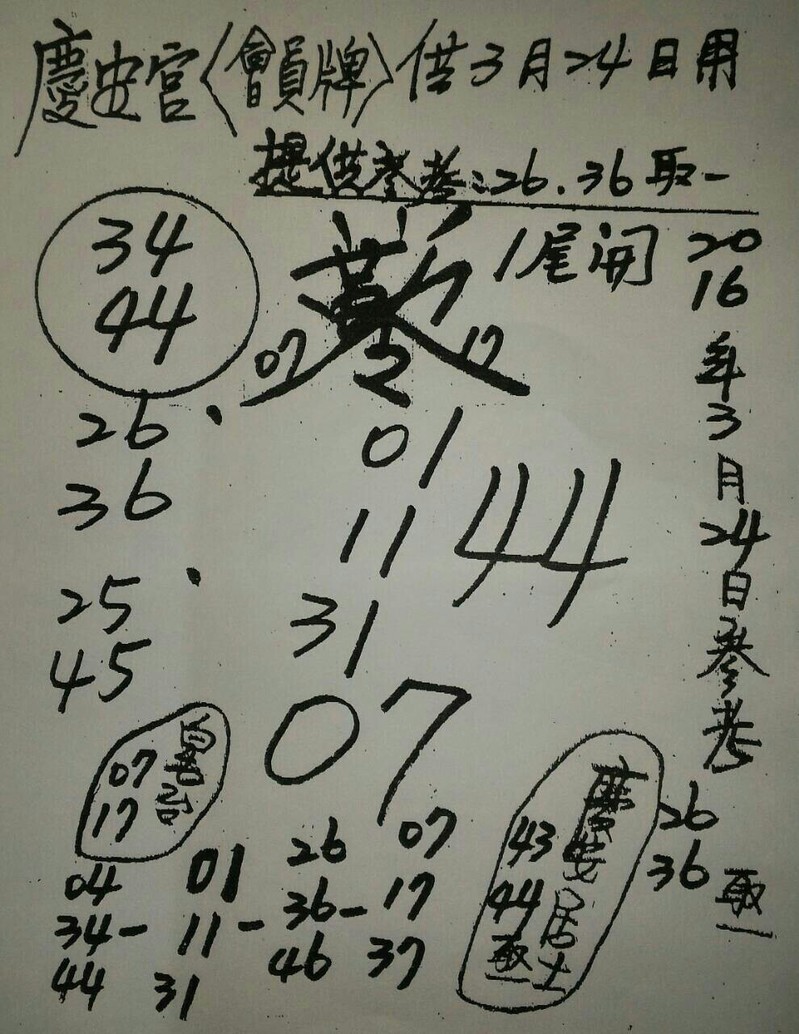 慶安宮〈會員牌〉供3月24日用
提供參考:26.36取一
34
44
1尾開
07
17
2016年3月24日參考
26
36
01
11
44
31
25
45
07
07
17
慶安居士
43
44
取一
26
36
取一
04 01 26 07
34- 11- 36- 17
44 31 46 37